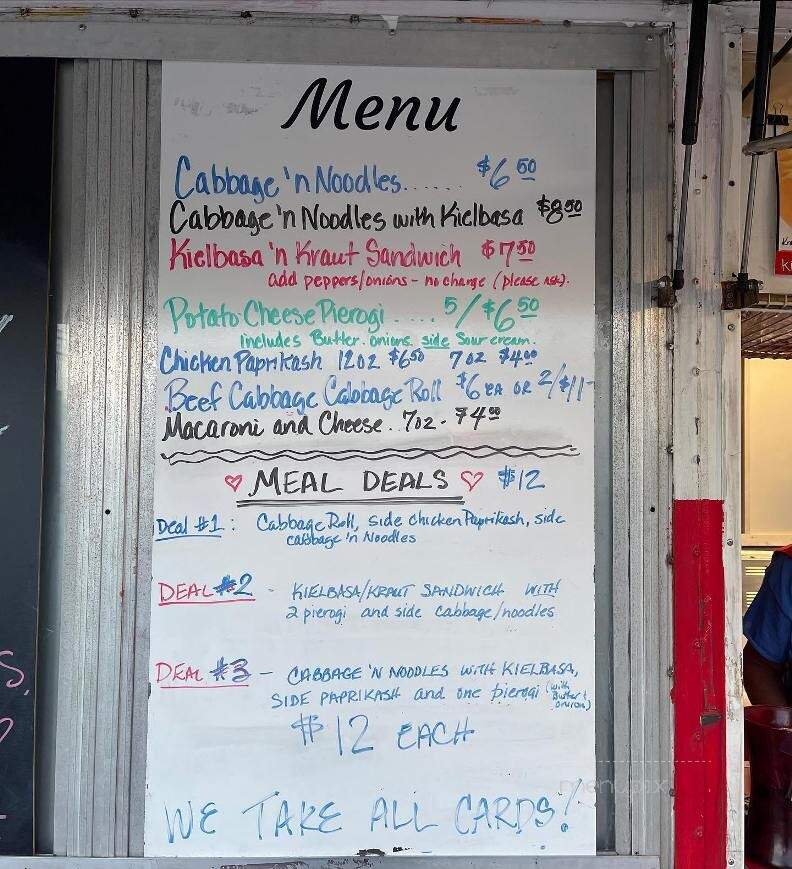 Menu
Cabbage 'n Noodles...... $6 50
Cabbage 'n Noodles with Kielbasa $8 50
Kielbasa 'n Kraut Sandwich $7 50
add peppers/onions - no charge (please ask).
Potato Cheese Pierogi .... 5/$6 50
includes Butter. onions. side Sour cream.
Chicken Paprikash 12oz $6 50 7oz $4 00
Beef Cabbage Cabbage Roll $6 EA OR 2/$11-
Macaroni and Cheese.. 7oz - $4 00
♡ MEAL DEALS ♡ $12
Deal #1 : Cabbage Roll, side chicken Paprikash, side
cabbage 'n Noodles
DEAL #2 - KIELBASA/KRAUT SANDWICH WITH
2 pierogi and side cabbage/noodles
DEAL #3 - CABBAGE 'N NOODLES WITH KIELBASA,
SIDE PAPRIKASH and one pierogi (with Butter & onions)
$12 EACH
WE TAKE ALL CARDS!
menupix